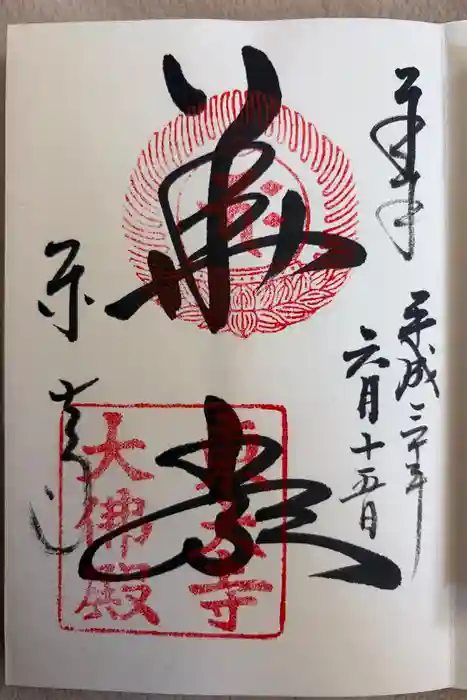 奉拝
平成三十年
六月十五日
華嚴
東大寺
東大寺
大佛殿